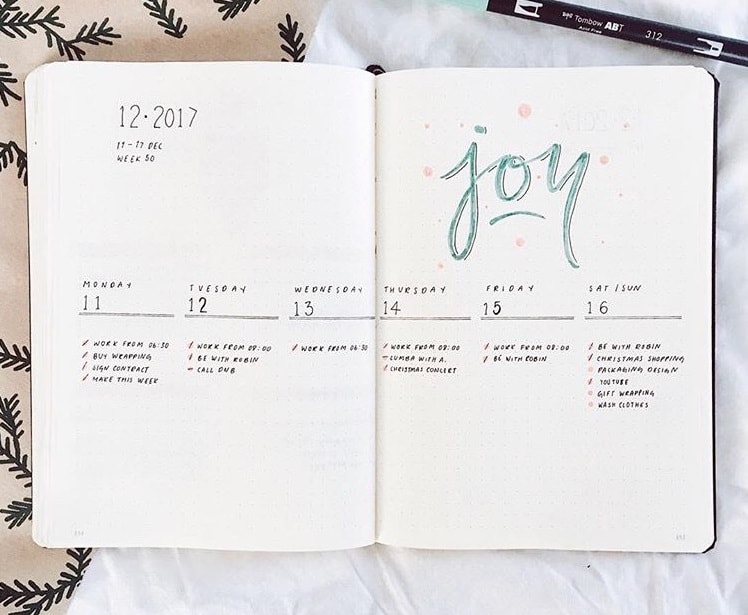 Tombow ABT 312
12·2017
11-17 DEC
WEEK 50
joy
MONDAY
11
WORK FROM 06:30
BUY WRAPPING
SIGN CONTRACT
MAKE THIS WEEK
TUESDAY
12
WORK FROM 08:00
BE WITH ROBIN
CALL DNB
WEDNESDAY
13
WORK FROM 06:30
THURSDAY
14
WORK FROM 08:00
ZUMBA WITH A.
CHRISTMAS CONCERT
FRIDAY
15
WORK FROM 08:00
BE WITH ROBIN
SAT/SUN
16
BE WITH ROBIN
CHRISTMAS SHOPPING
PACKAGING DESIGN
YOUTUBE
GIFT WRAPPING
WASH CLOTHES